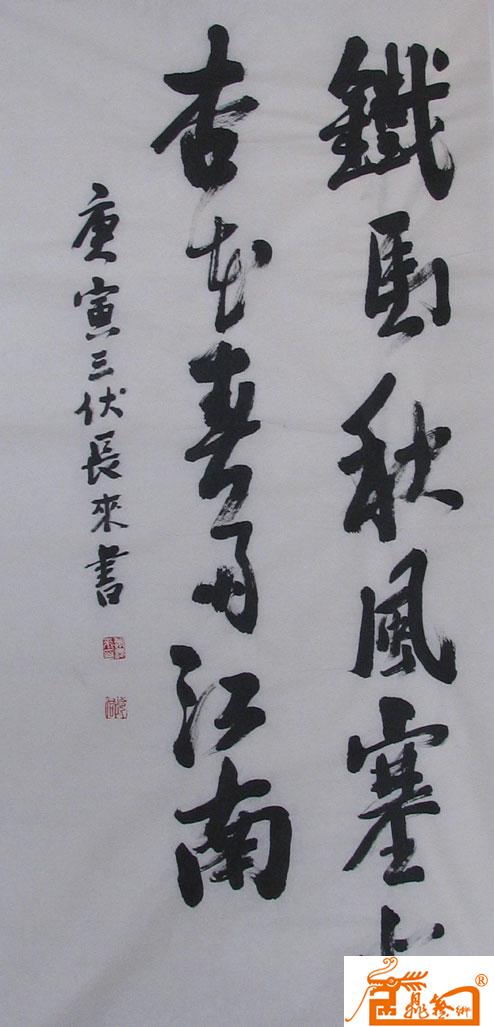 鐵馬秋風塞上
杏花春雨江南
庚寅三伏長來書